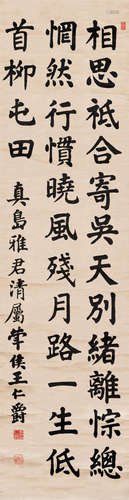 相思祗合寄吳天別緒離悰總
惘然行慣曉風殘月路一生低
首柳屯田
真島雅君清屬 肈侯王仁爵